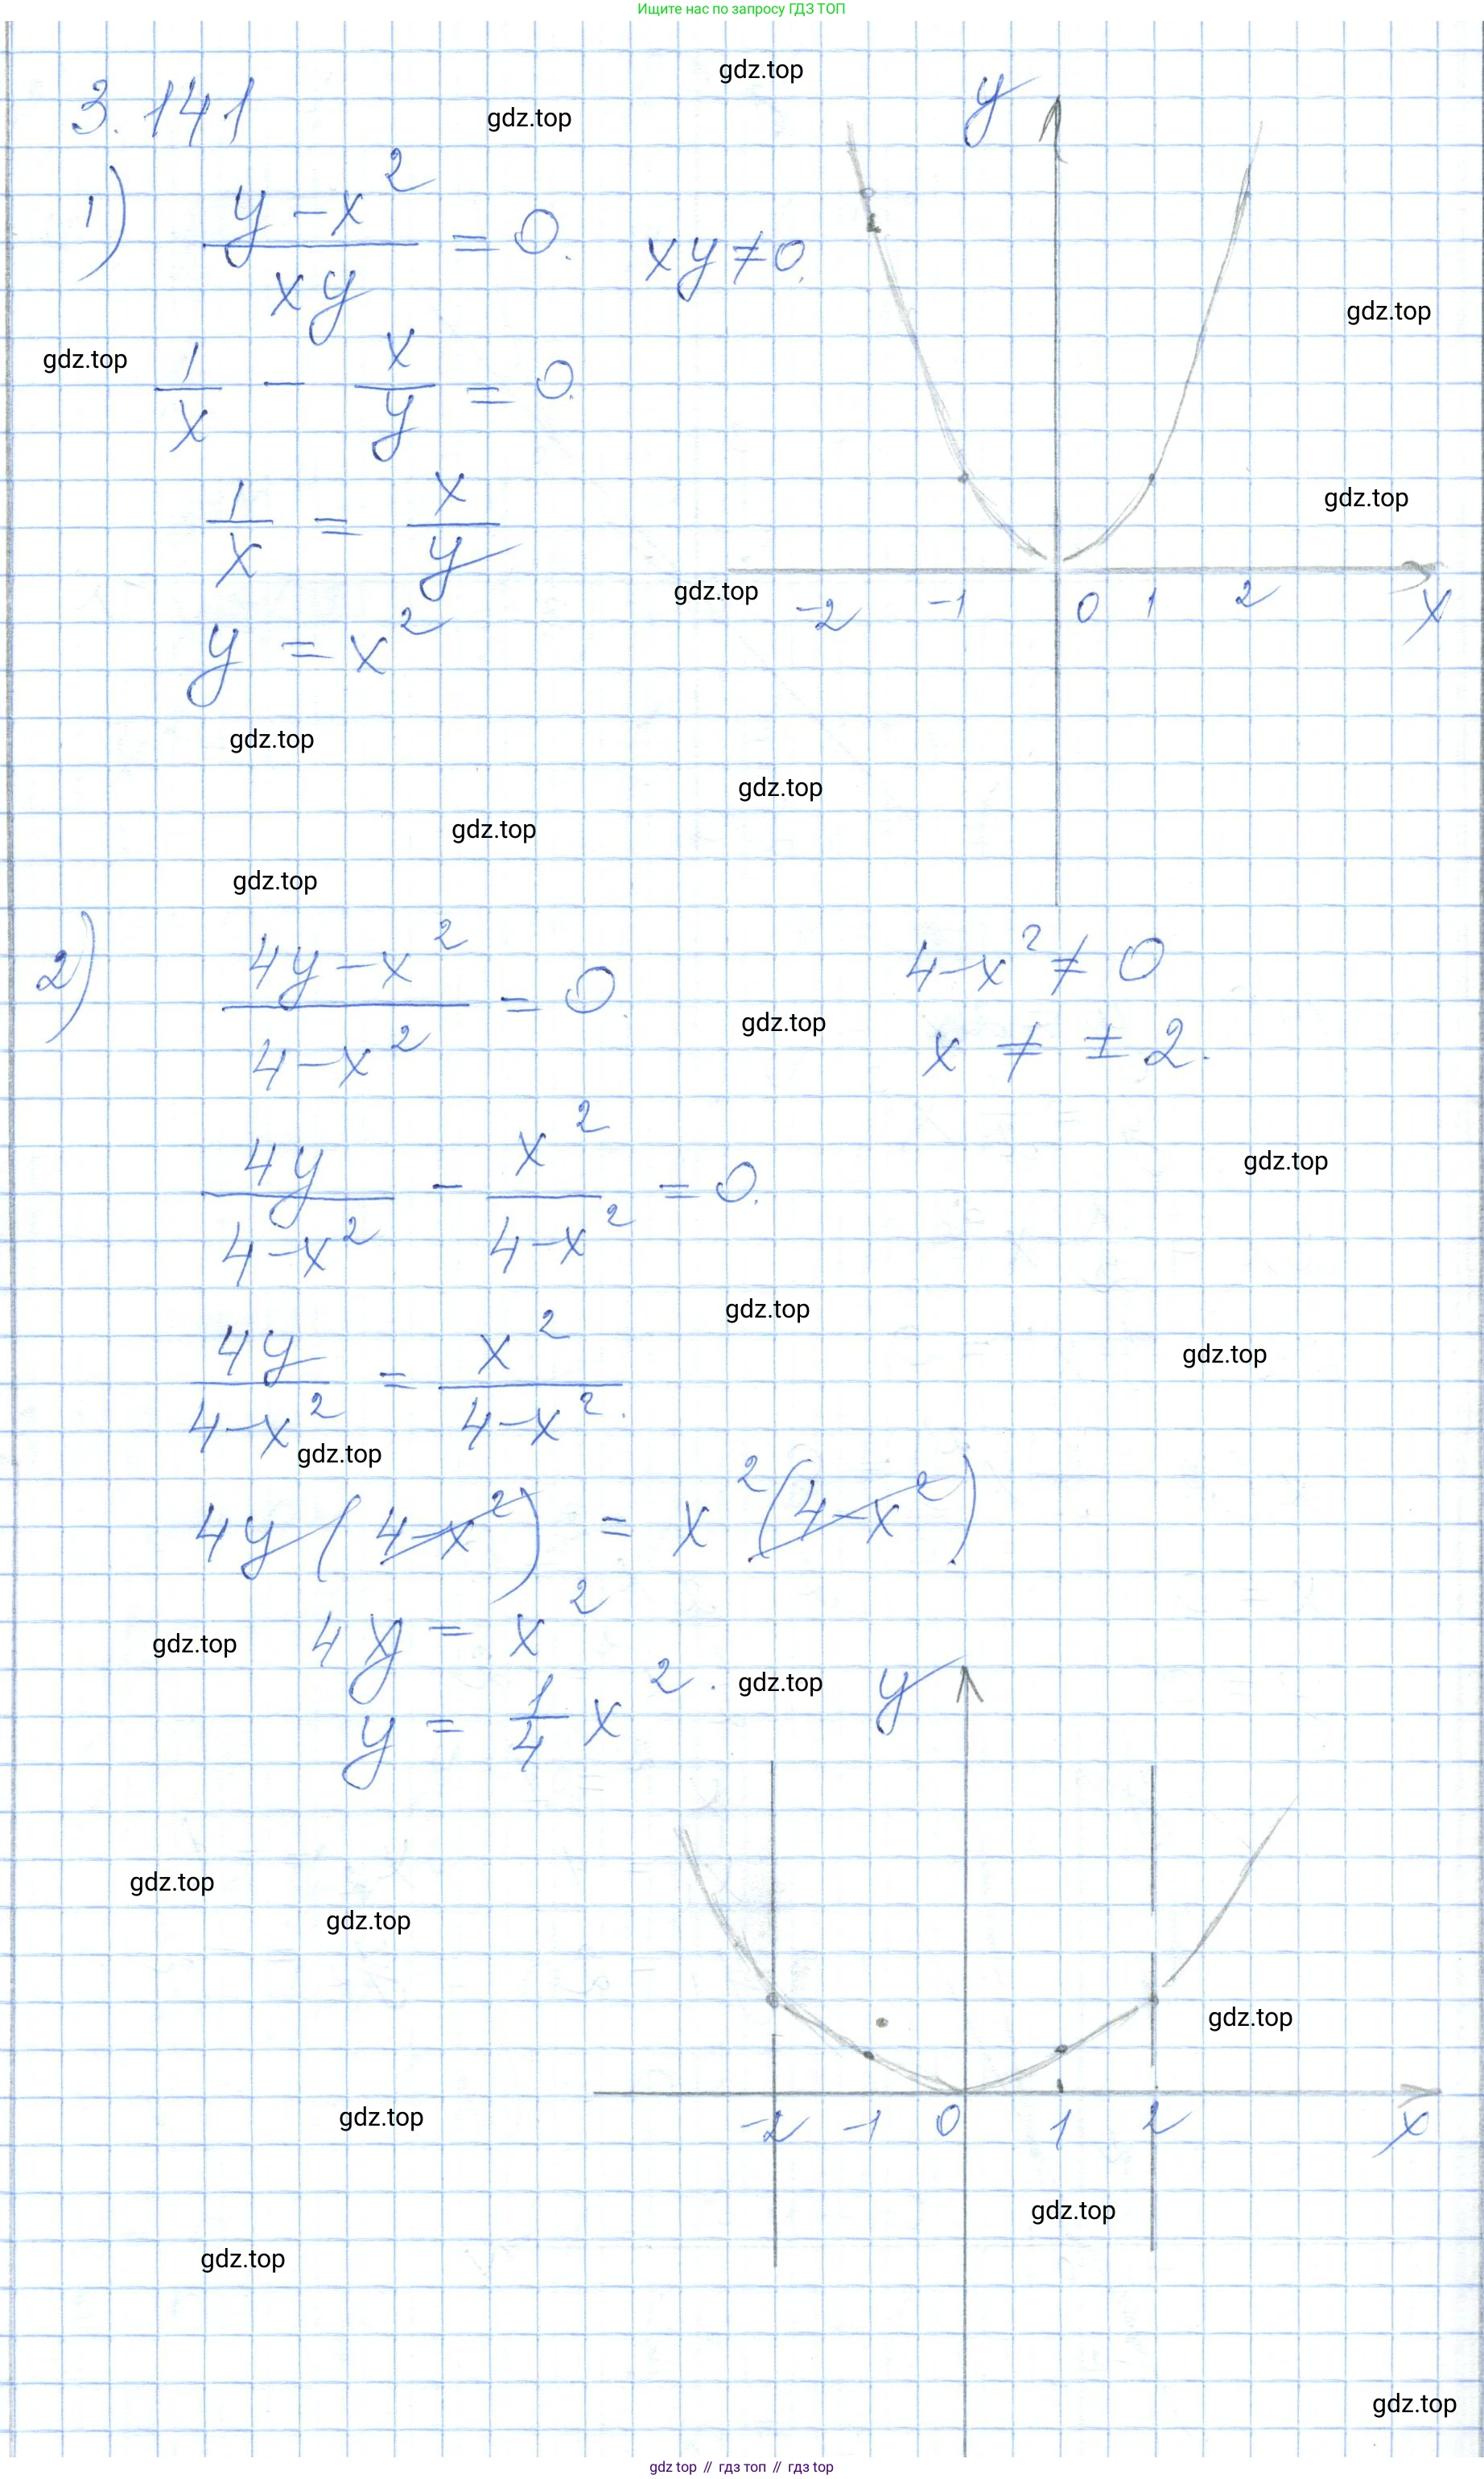 Ищите нас по запросу ГДЗ ТОП
gdz.top
3.141
gdz.top
1) (y - x²)/(xy) = 0. xy ≠ 0.
gdz.top
gdz.top
1/x - x/y = 0.
1/x = x/y
gdz.top
gdz.top
y = x²
y
-2 -1 0 1 2 x
gdz.top
gdz.top
gdz.top
gdz.top
2) (4y - x²)/(4 - x²) = 0. 4 - x² ≠ 0
gdz.top
x ≠ ± 2.
4y/(4 - x²) - x²/(4 - x²) = 0.
gdz.top
gdz.top
4y/(4 - x²) = x²/(4 - x²).
gdz.top
gdz.top
4y(4 - x²) = x²(4 - x²).
4y = x²
gdz.top
y = 1/4 x².
gdz.top
y
gdz.top
gdz.top
gdz.top
-2 -1 0 1 2 x
gdz.top
gdz.top
gdz.top
gdz.top
gdz top // гдз топ // гдз top